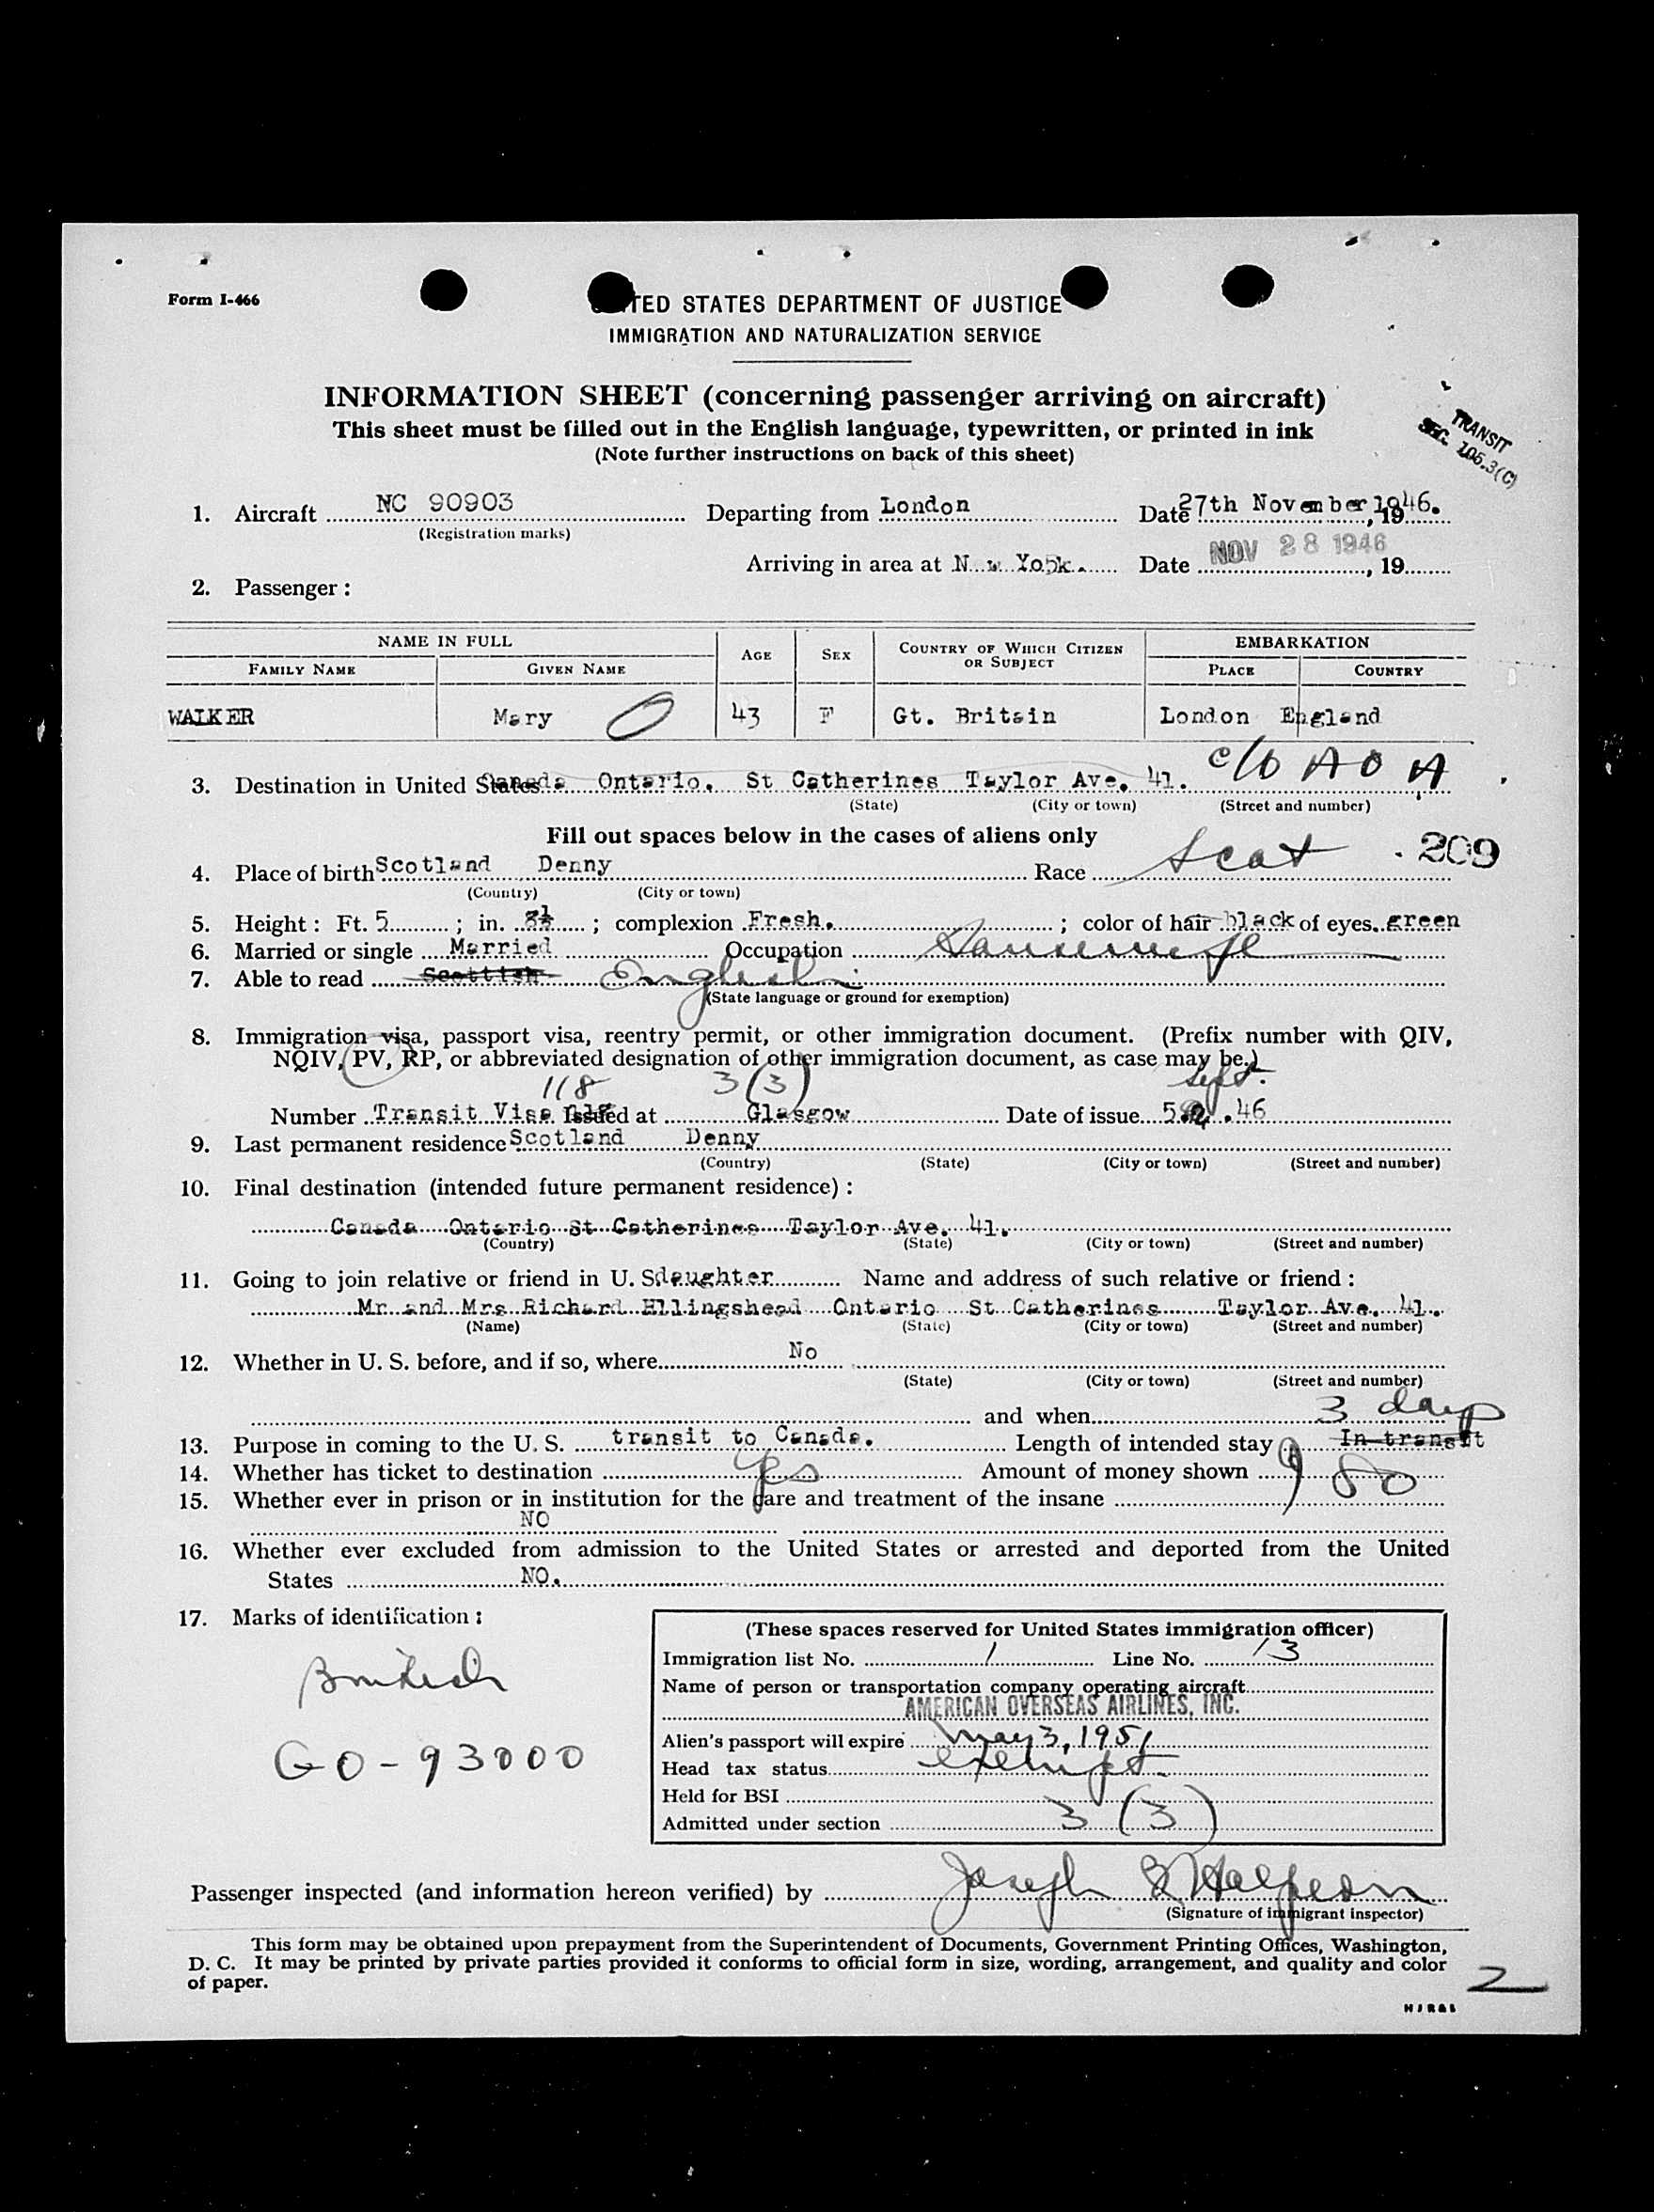 Form I-466
UNITED STATES DEPARTMENT OF JUSTICE
IMMIGRATION AND NATURALIZATION SERVICE
INFORMATION SHEET (concerning passenger arriving on aircraft)
This sheet must be filled out in the English language, typewritten, or printed in ink
(Note further instructions on back of this sheet)
TRANSIT
SEC. 105.3(C)
1. Aircraft NC 90903 Departing from London Date 27th November, 1946.
(Registration marks)
Arriving in area at New York. Date NOV 28 1946, 19
2. Passenger:
NAME IN FULL AGE SEX COUNTRY OF WHICH CITIZEN OR SUBJECT EMBARKATION
FAMILY NAME GIVEN NAME PLACE COUNTRY
WALKER Mary 43 F Gt. Britain London England
3. Destination in United States Canada Ontario. St Catherines Taylor Ave. 41. c/o A O A
(State) (City or town) (Street and number)
Fill out spaces below in the cases of aliens only
209
4. Place of birth Scotland Denny Race Scot
(Country) (City or town)
5. Height: Ft. 5; in. 8½; complexion Fresh.; color of hair black of eyes green
6. Married or single Married Occupation Housewife
7. Able to read Scottish English
(State language or ground for exemption)
8. Immigration visa, passport visa, reentry permit, or other immigration document. (Prefix number with QIV,
NQIV, PV, RP, or abbreviated designation of other immigration document, as case may be.)
118 3(3) Sept.
Number Transit Visa Issued at Glasgow Date of issue 5. .46
9. Last permanent residence Scotland Denny
(Country) (State) (City or town) (Street and number)
10. Final destination (intended future permanent residence):
Canada Ontario St Catherines Taylor Ave. 41.
(Country) (State) (City or town) (Street and number)
11. Going to join relative or friend in U. S. daughter Name and address of such relative or friend:
Mr and Mrs Richard Ellingshead Ontario St Catherines Taylor Ave. 41.
(Name) (State) (City or town) (Street and number)
12. Whether in U. S. before, and if so, where No
(State) (City or town) (Street and number)
and when 3 days
13. Purpose in coming to the U. S. transit to Canada. Length of intended stay In transit
14. Whether has ticket to destination Yes Amount of money shown 80
15. Whether ever in prison or in institution for the care and treatment of the insane
NO
16. Whether ever excluded from admission to the United States or arrested and deported from the United
States NO.
17. Marks of identification:
British
GO-93000
(These spaces reserved for United States immigration officer)
Immigration list No. 1 Line No. 13
Name of person or transportation company operating aircraft
AMERICAN OVERSEAS AIRLINES, INC.
Alien's passport will expire May 3, 1951
Head tax status exempt
Held for BSI
Admitted under section 3 (3)
Passenger inspected (and information hereon verified) by Joseph Halpern
(Signature of immigrant inspector)
This form may be obtained upon prepayment from the Superintendent of Documents, Government Printing Offices, Washington,
D. C. It may be printed by private parties provided it conforms to official form in size, wording, arrangement, and quality and color
of paper.
2